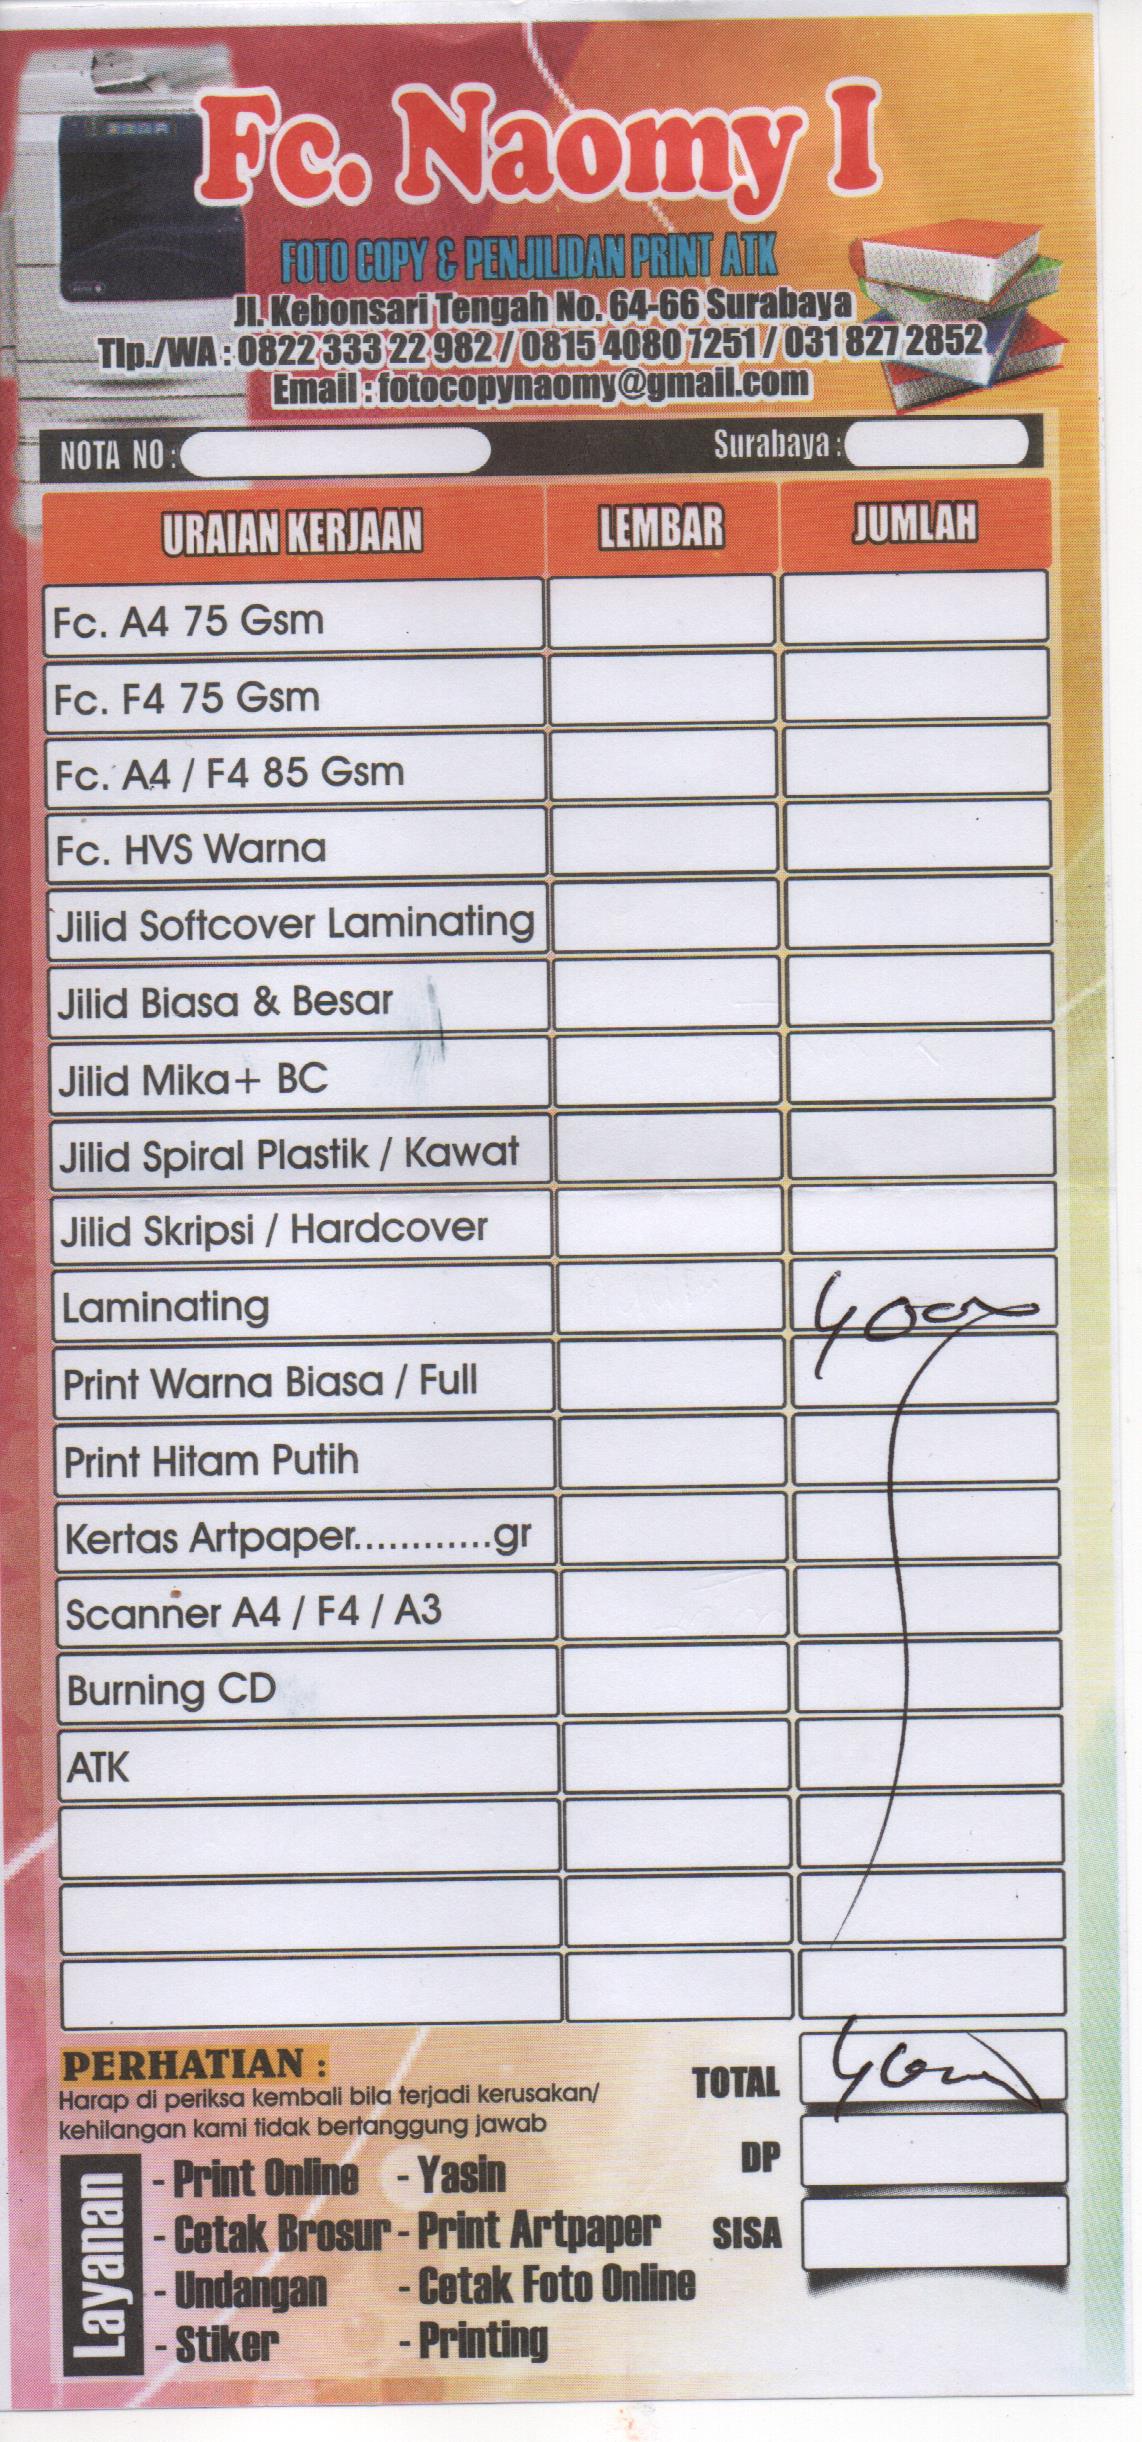 Fc. Naomy I
FOTO COPY & PENJILIDAN PRINT ATK
Jl. Kebonsari Tengah No. 64-66 Surabaya
Tlp./WA : 0822 333 22 982 / 0815 4080 7251 / 031 827 2852
Email : fotocopynaomy@gmail.com
NOTA NO : Surabaya :
URAIAN KERJAAN LEMBAR JUMLAH
Fc. A4 75 Gsm
Fc. F4 75 Gsm
Fc. A4 / F4 85 Gsm
Fc. HVS Warna
Jilid Softcover Laminating
Jilid Biasa & Besar
Jilid Mika+ BC
Jilid Spiral Plastik / Kawat
Jilid Skripsi / Hardcover
Laminating 4000
Print Warna Biasa / Full
Print Hitam Putih
Kertas Artpaper............gr
Scanner A4 / F4 / A3
Burning CD
ATK
PERHATIAN :
Harap di periksa kembali bila terjadi kerusakan/
kehilangan kami tidak bertanggung jawab
TOTAL 4000
DP
SISA
Layanan
- Print Online - Yasin
- Cetak Brosur - Print Artpaper
- Undangan - Cetak Foto Online
- Stiker - Printing